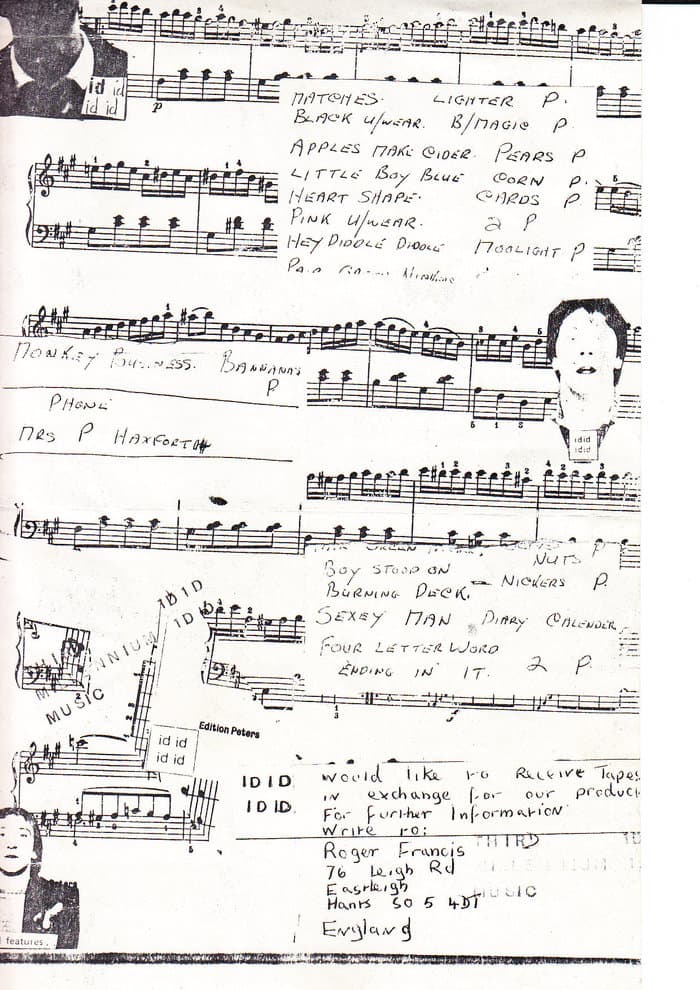 id id
id id
MATCHES. LIGHTER P.
BLACK U/WEAR. B/MAGIC P
APPLES MAKE CIDER. PEARS P
LITTLE BOY BLUE CORN P.
HEART SHAPE. CARDS P
PINK U/WEAR. 2 P
HEY DIDDLE DIDDLE MOOLIGHT P
MONKEY BUSINESS. BANNANAS
P
PHONE
MRS P HAXFORTH
idid
idid
NUTS P
BOY STOOD ON
BURNING DECK. – NICKERS P.
SEXEY MAN DIARY CALENDER
FOUR LETTER WORD
ENDING IN IT. 2 P.
IDID
ID
MILLENNIUM
MUSIC
Edition Peters
id id
id id
IDID
IDID.
would like to Receive Tapes
in exchange for our product
For further Information
Write to:
Roger Francis
76 Leigh Rd
Eastleigh
Hants SO5 4DT
England
THIRD
MUSIC
features.